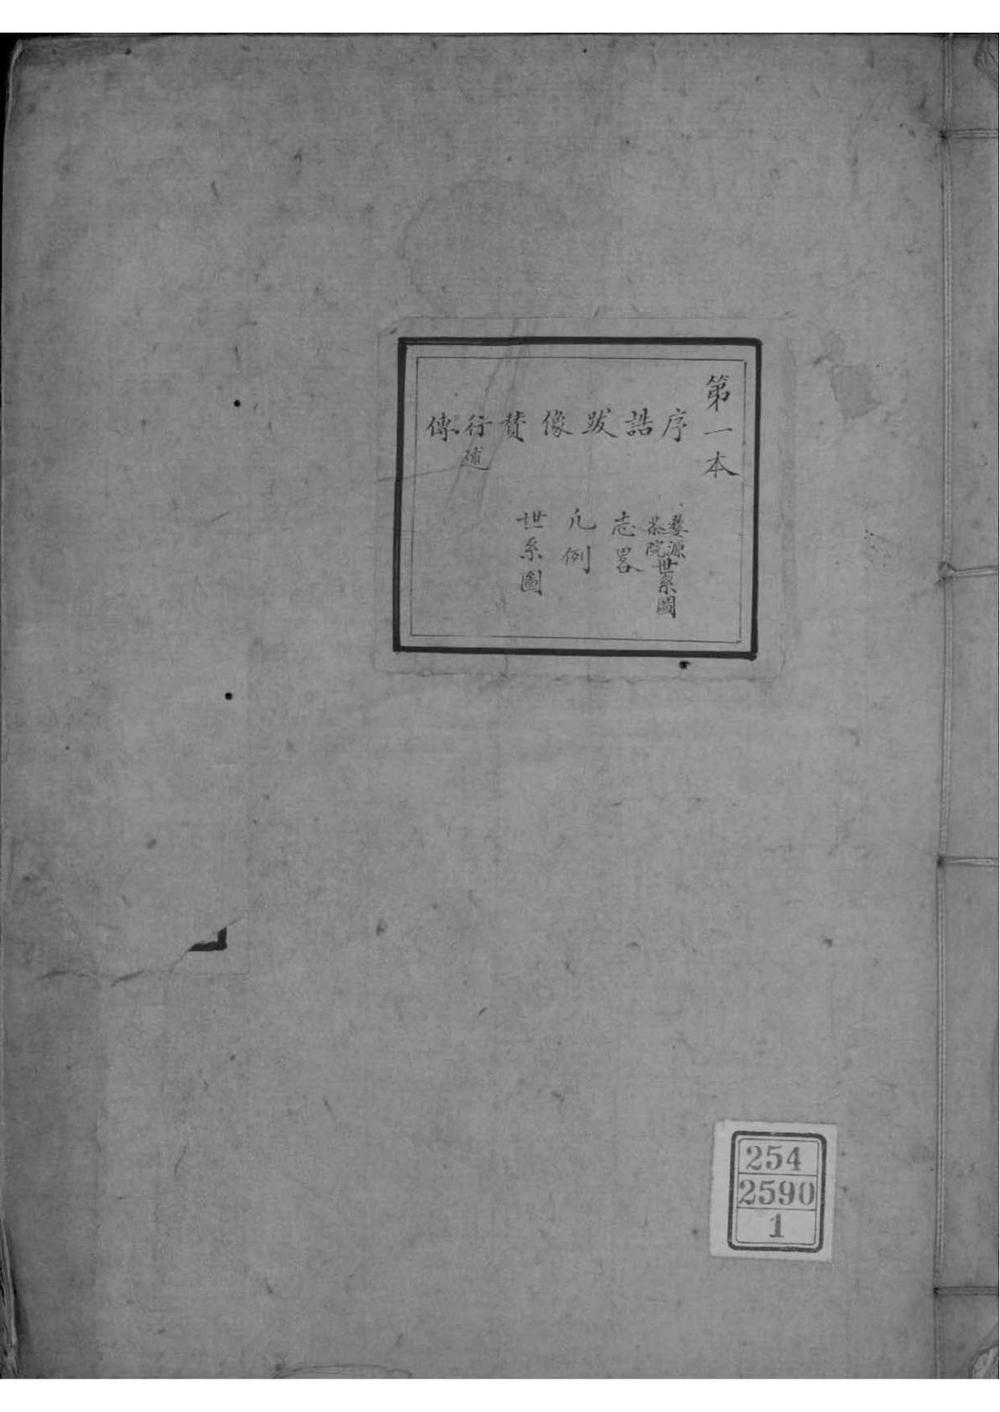 第一本
序
誥
跋
像
贊
行述
傳
婺源
茶院
世系圖
志畧
凡例
世系圖
254
2590
1